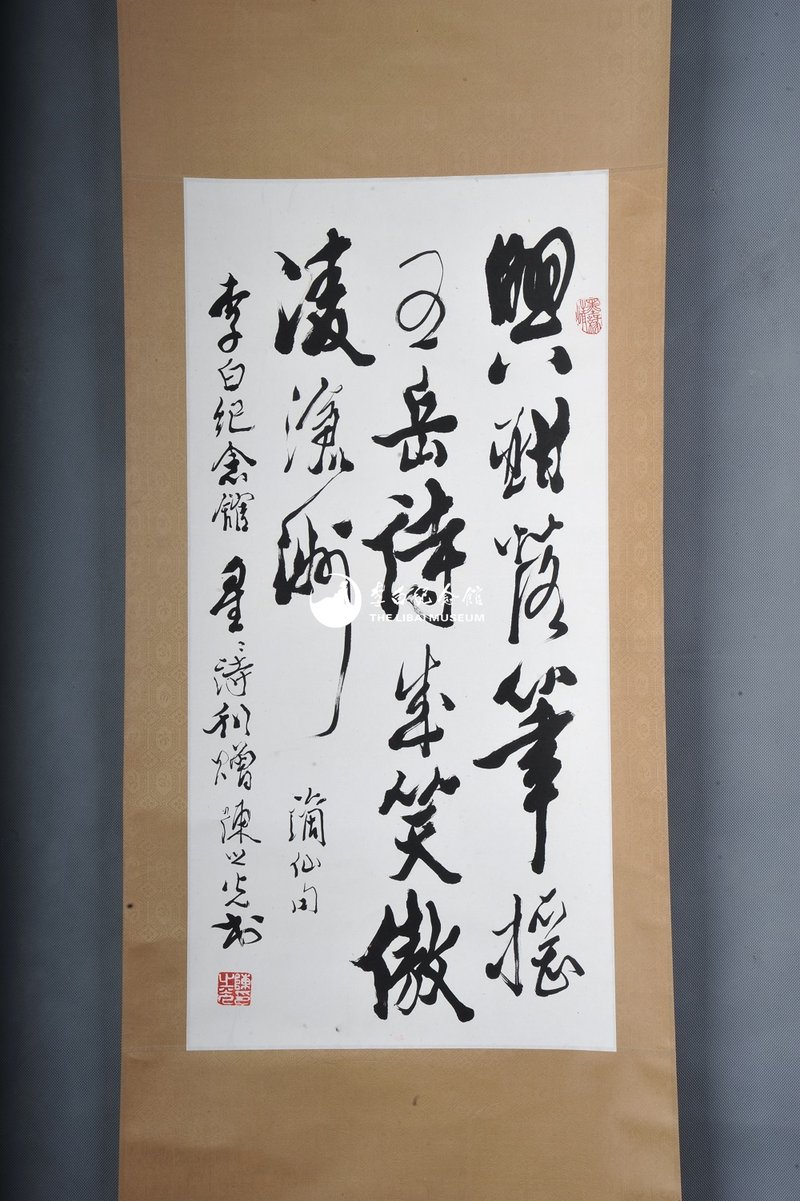 興酣落筆搖
五岳詩成笑傲
凌滄洲
謫仙句
李白紀念館 星〻詩刊贈 陳之光书
李白纪念館
THE LIBAI MUSEUM
陳之光印